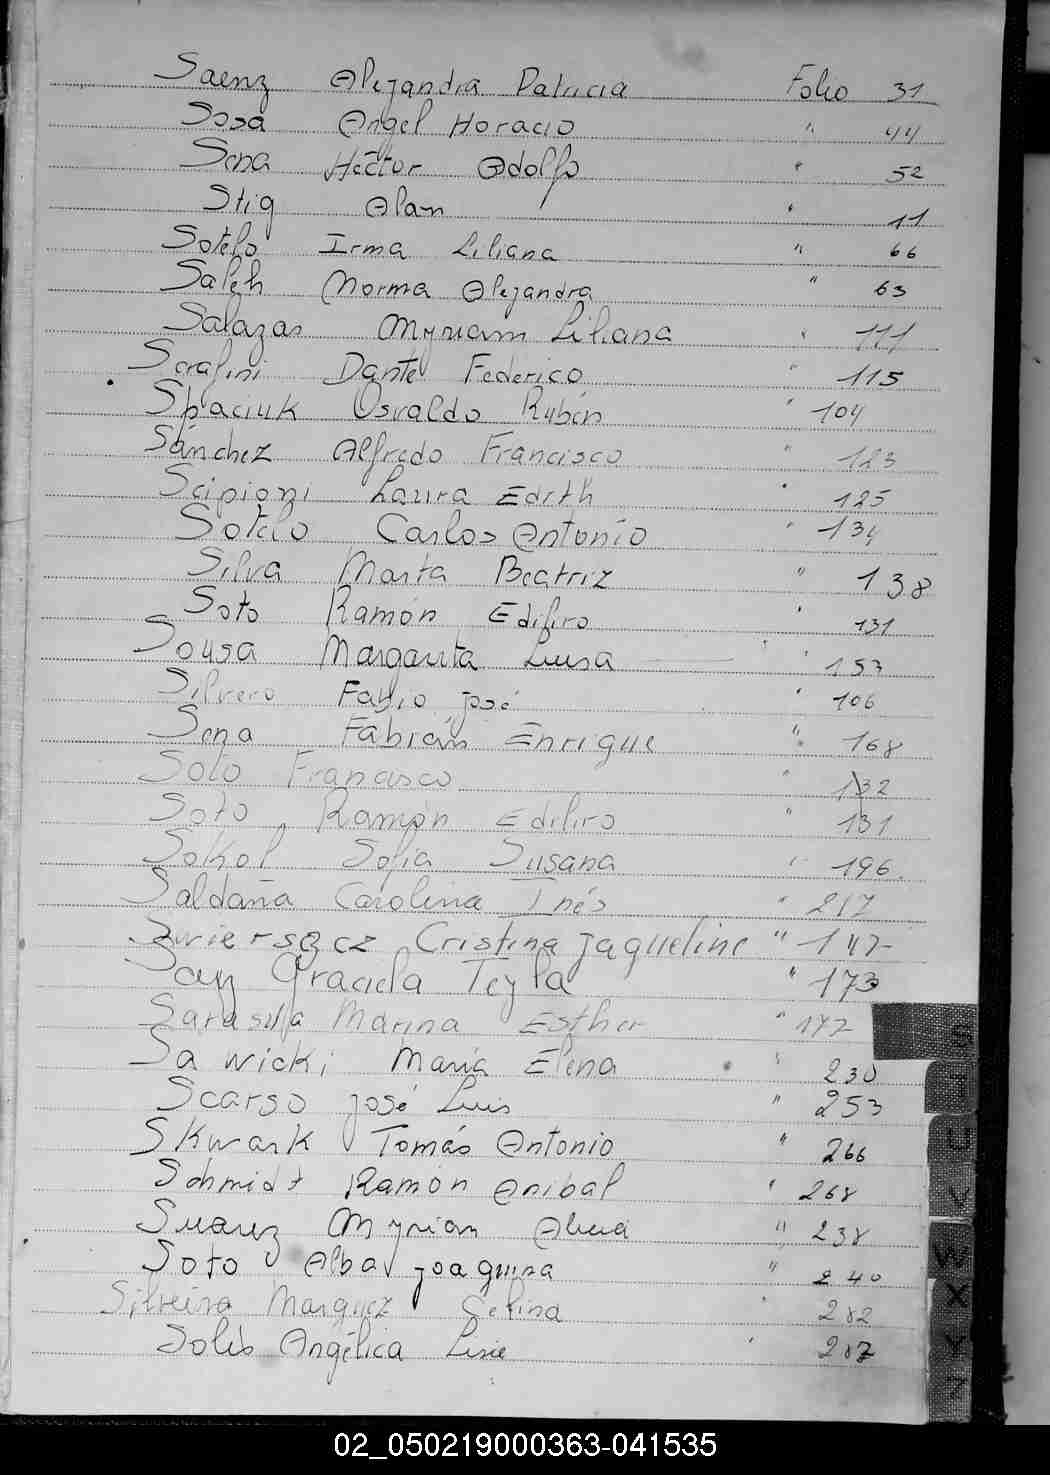 Saenz Alejandra Patricia Folio 31
Sosa Angel Horacio " 44
Sena Héctor Adolfo " 52
Stig Alan " 11
Sotelo Irma Liliana " 66
Saleh Norma Alejandra " 63
Salazar Myriam Liliana " 111
Serafini Dante Federico " 115
Spaciuk Osvaldo Rubén " 104
Sánchez Alfredo Francisco " 123
Scipioni Laura Edith " 125
Sotelo Carlos Antonio " 134
Silva Marta Beatriz " 138
Soto Ramón Edifiro " 131
Sousa Margarita Luisa " 153
Silvero Fabio José " 106
Sena Fabián Enrique " 168
Soto Francisco " 132
Soto Ramón Edifiro " 131
Sokol Sofia Susana " 196
Saldaña Carolina Inés " 217
Cristina Jaqueline " 147
Graciela " 173
Marina Esther " 177
Sawicki María Elena " 230
Scarso José Luis " 253
Skwark Tomás Antonio " 266
Schmidt Ramón Anibal " 268
Suarez Myrian " 238
Soto Alba Joaquina " 240
Silveira Marquez Celina " 282
Solis Angélica " 287
S
T
U
V
W
X
Y
Z
02_050219000363-041535